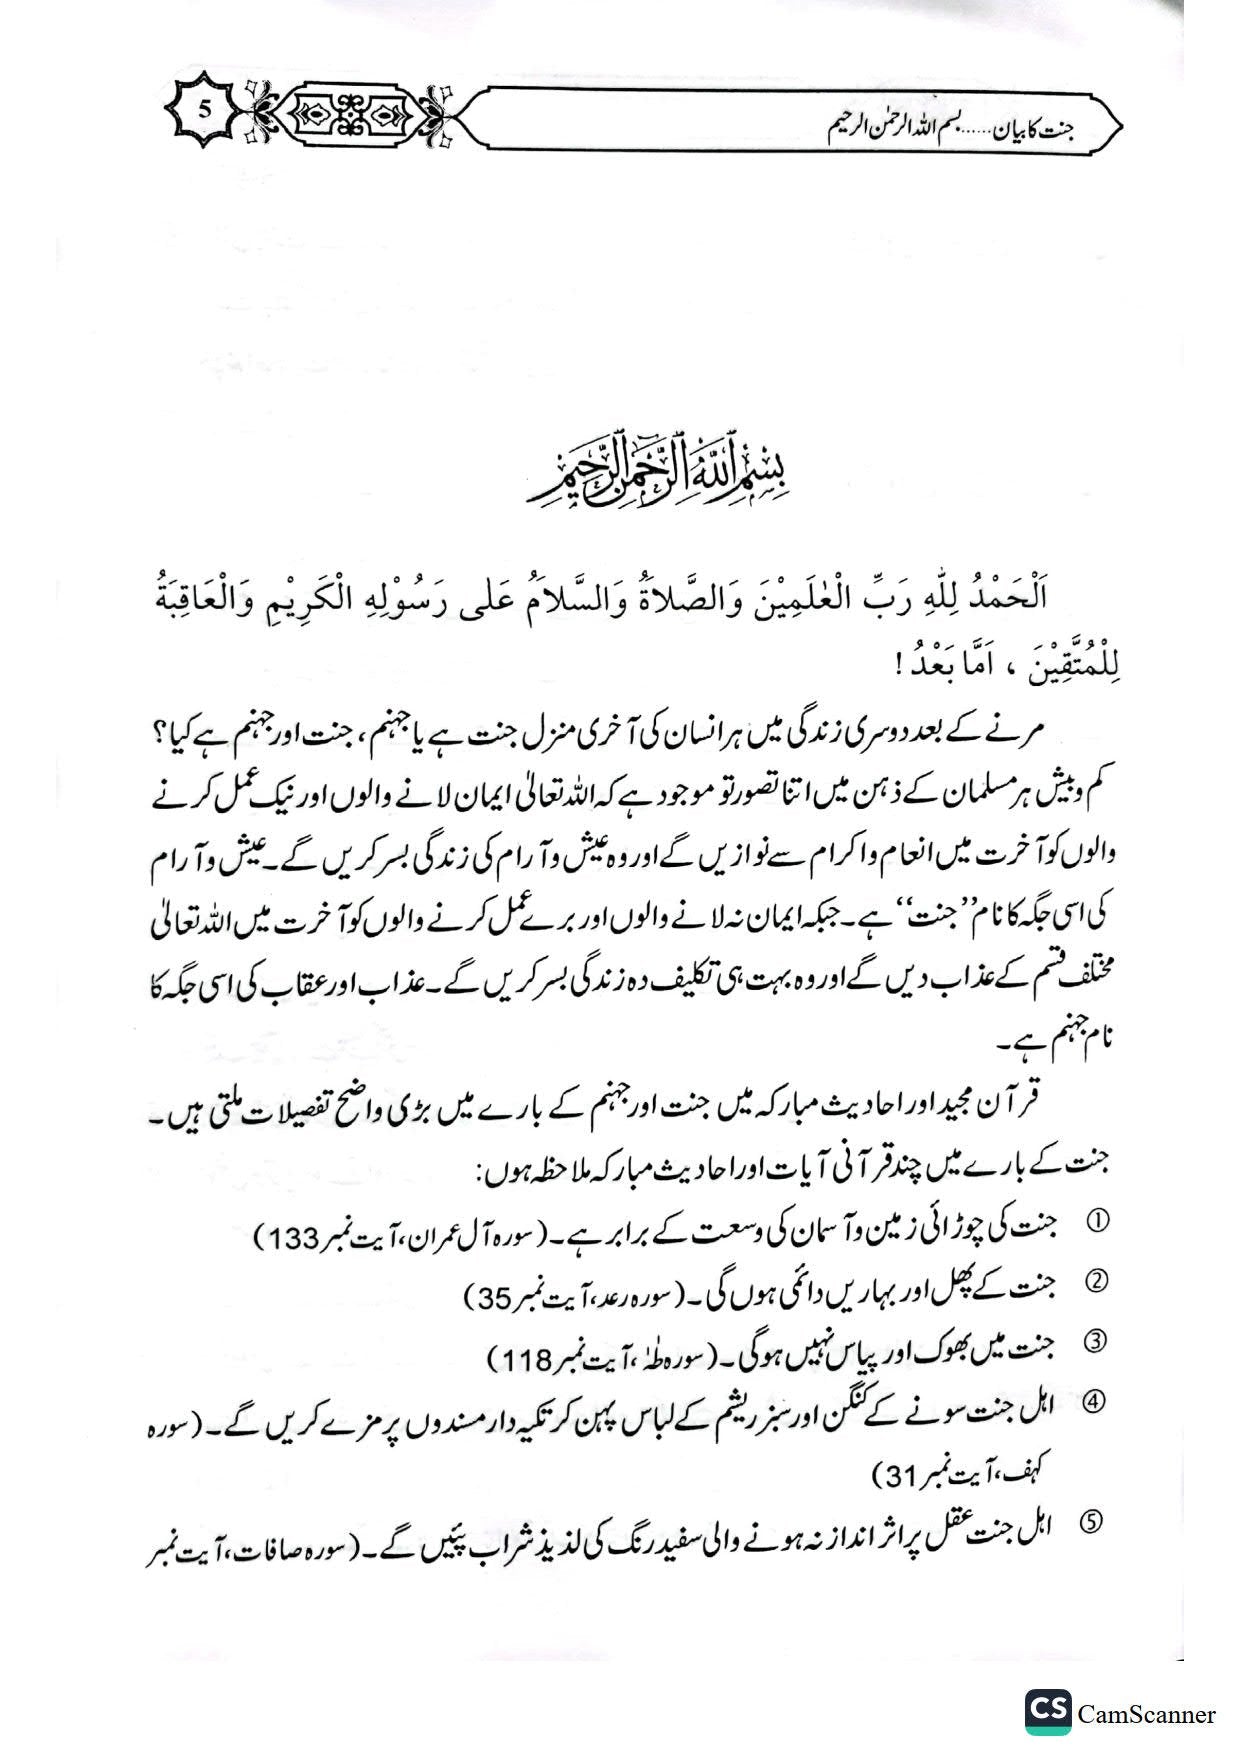 جنت کا بیان......بسم اللہ الرحمٰن الرحیم
5
بِسْمِ اللّٰهِ الرَّحْمٰنِ الرَّحِيْمِ
اَلْحَمْدُ لِلّٰهِ رَبِّ الْعٰلَمِيْنَ وَالصَّلاَةُ وَالسَّلاَمُ عَلٰى رَسُوْلِهِ الْكَرِيْمِ وَالْعَاقِبَةُ
لِلْمُتَّقِيْنَ ، اَمَّا بَعْدُ !
مرنے کے بعد دوسری زندگی میں ہر انسان کی آخری منزل جنت ہے یا جہنم، جنت اور جہنم ہے کیا؟
کم و بیش ہر مسلمان کے ذہن میں اتنا تصور تو موجود ہے کہ اللہ تعالیٰ ایمان لانے والوں اور نیک عمل کرنے
والوں کو آخرت میں انعام و اکرام سے نوازیں گے اور وہ عیش و آرام کی زندگی بسر کریں گے۔ عیش و آرام
کی اسی جگہ کا نام ’’جنت‘‘ ہے۔ جبکہ ایمان نہ لانے والوں اور برے عمل کرنے والوں کو آخرت میں اللہ تعالیٰ
مختلف قسم کے عذاب دیں گے اور وہ بہت ہی تکلیف دہ زندگی بسر کریں گے۔ عذاب اور عقاب کی اسی جگہ کا
نام جہنم ہے۔
قرآن مجید اور احادیث مبارکہ میں جنت اور جہنم کے بارے میں بڑی واضح تفصیلات ملتی ہیں۔
جنت کے بارے میں چند قرآنی آیات اور احادیث مبارکہ ملاحظہ ہوں:
① جنت کی چوڑائی زمین و آسمان کی وسعت کے برابر ہے۔ (سورہ آل عمران، آیت نمبر 133)
② جنت کے پھل اور بہاریں دائمی ہوں گی۔ (سورہ رعد، آیت نمبر 35)
③ جنت میں بھوک اور پیاس نہیں ہوگی۔ (سورہ طٰہٰ، آیت نمبر 118)
④ اہل جنت سونے کے کنگن اور سبز ریشم کے لباس پہن کر تکیہ دار مسندوں پر مزے کریں گے۔ (سورہ
کہف، آیت نمبر 31)
⑤ اہل جنت عقل پر اثر انداز نہ ہونے والی سفید رنگ کی لذیذ شراب پئیں گے۔ (سورہ صافات، آیت نمبر
CS CamScanner